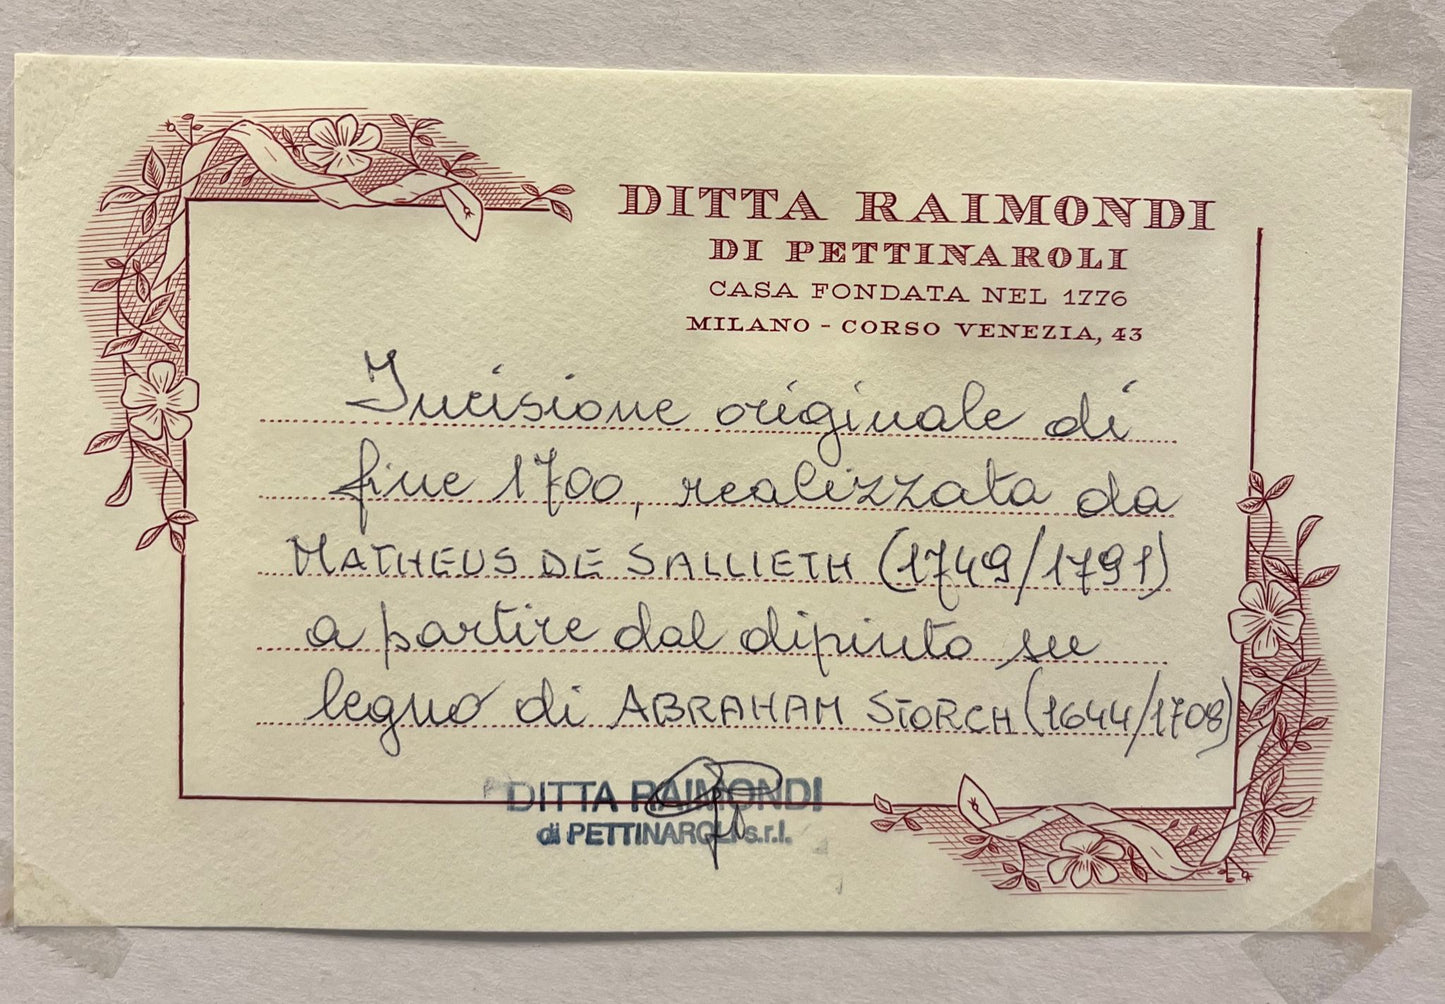 DITTA RAIMONDI
DI PETTINAROLI
CASA FONDATA NEL 1776
MILANO - CORSO VENEZIA, 43
Incisione originale di
fine 1700, realizzata da
MATHEUS DE SALLIETH (1749/1791)
a partire dal dipinto su
legno di ABRAHAM STORCH (1644/1708)
DITTA RAIMONDI
di PETTINAROLI s.r.l.